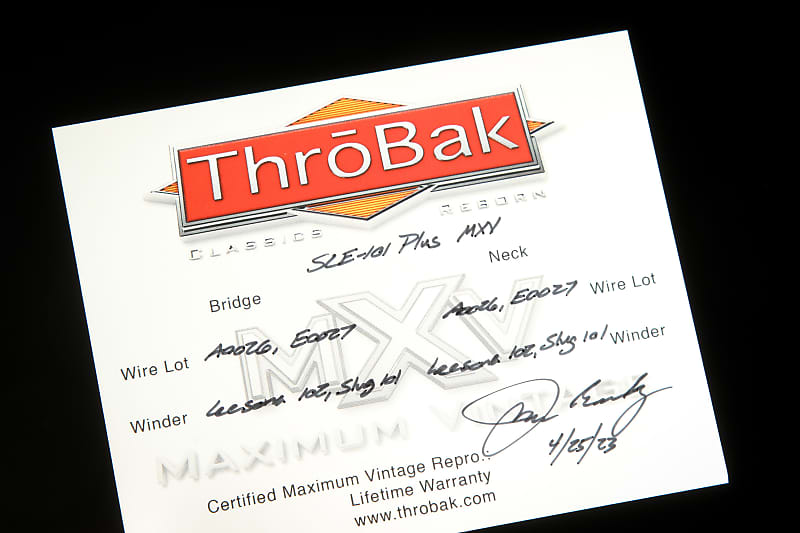 ThrōBak
CLASSICS REBORN
SLE-101 Plus MXV
Bridge Neck
Wire Lot A0026, E0027 A0026, E0027 Wire Lot
Winder Leesona 102, Slug 101 Leesona 102, Slug 101 Winder
MXV
MAXIMUM VINTAGE
4/25/23
Certified Maximum Vintage Repro.
Lifetime Warranty
www.throbak.com